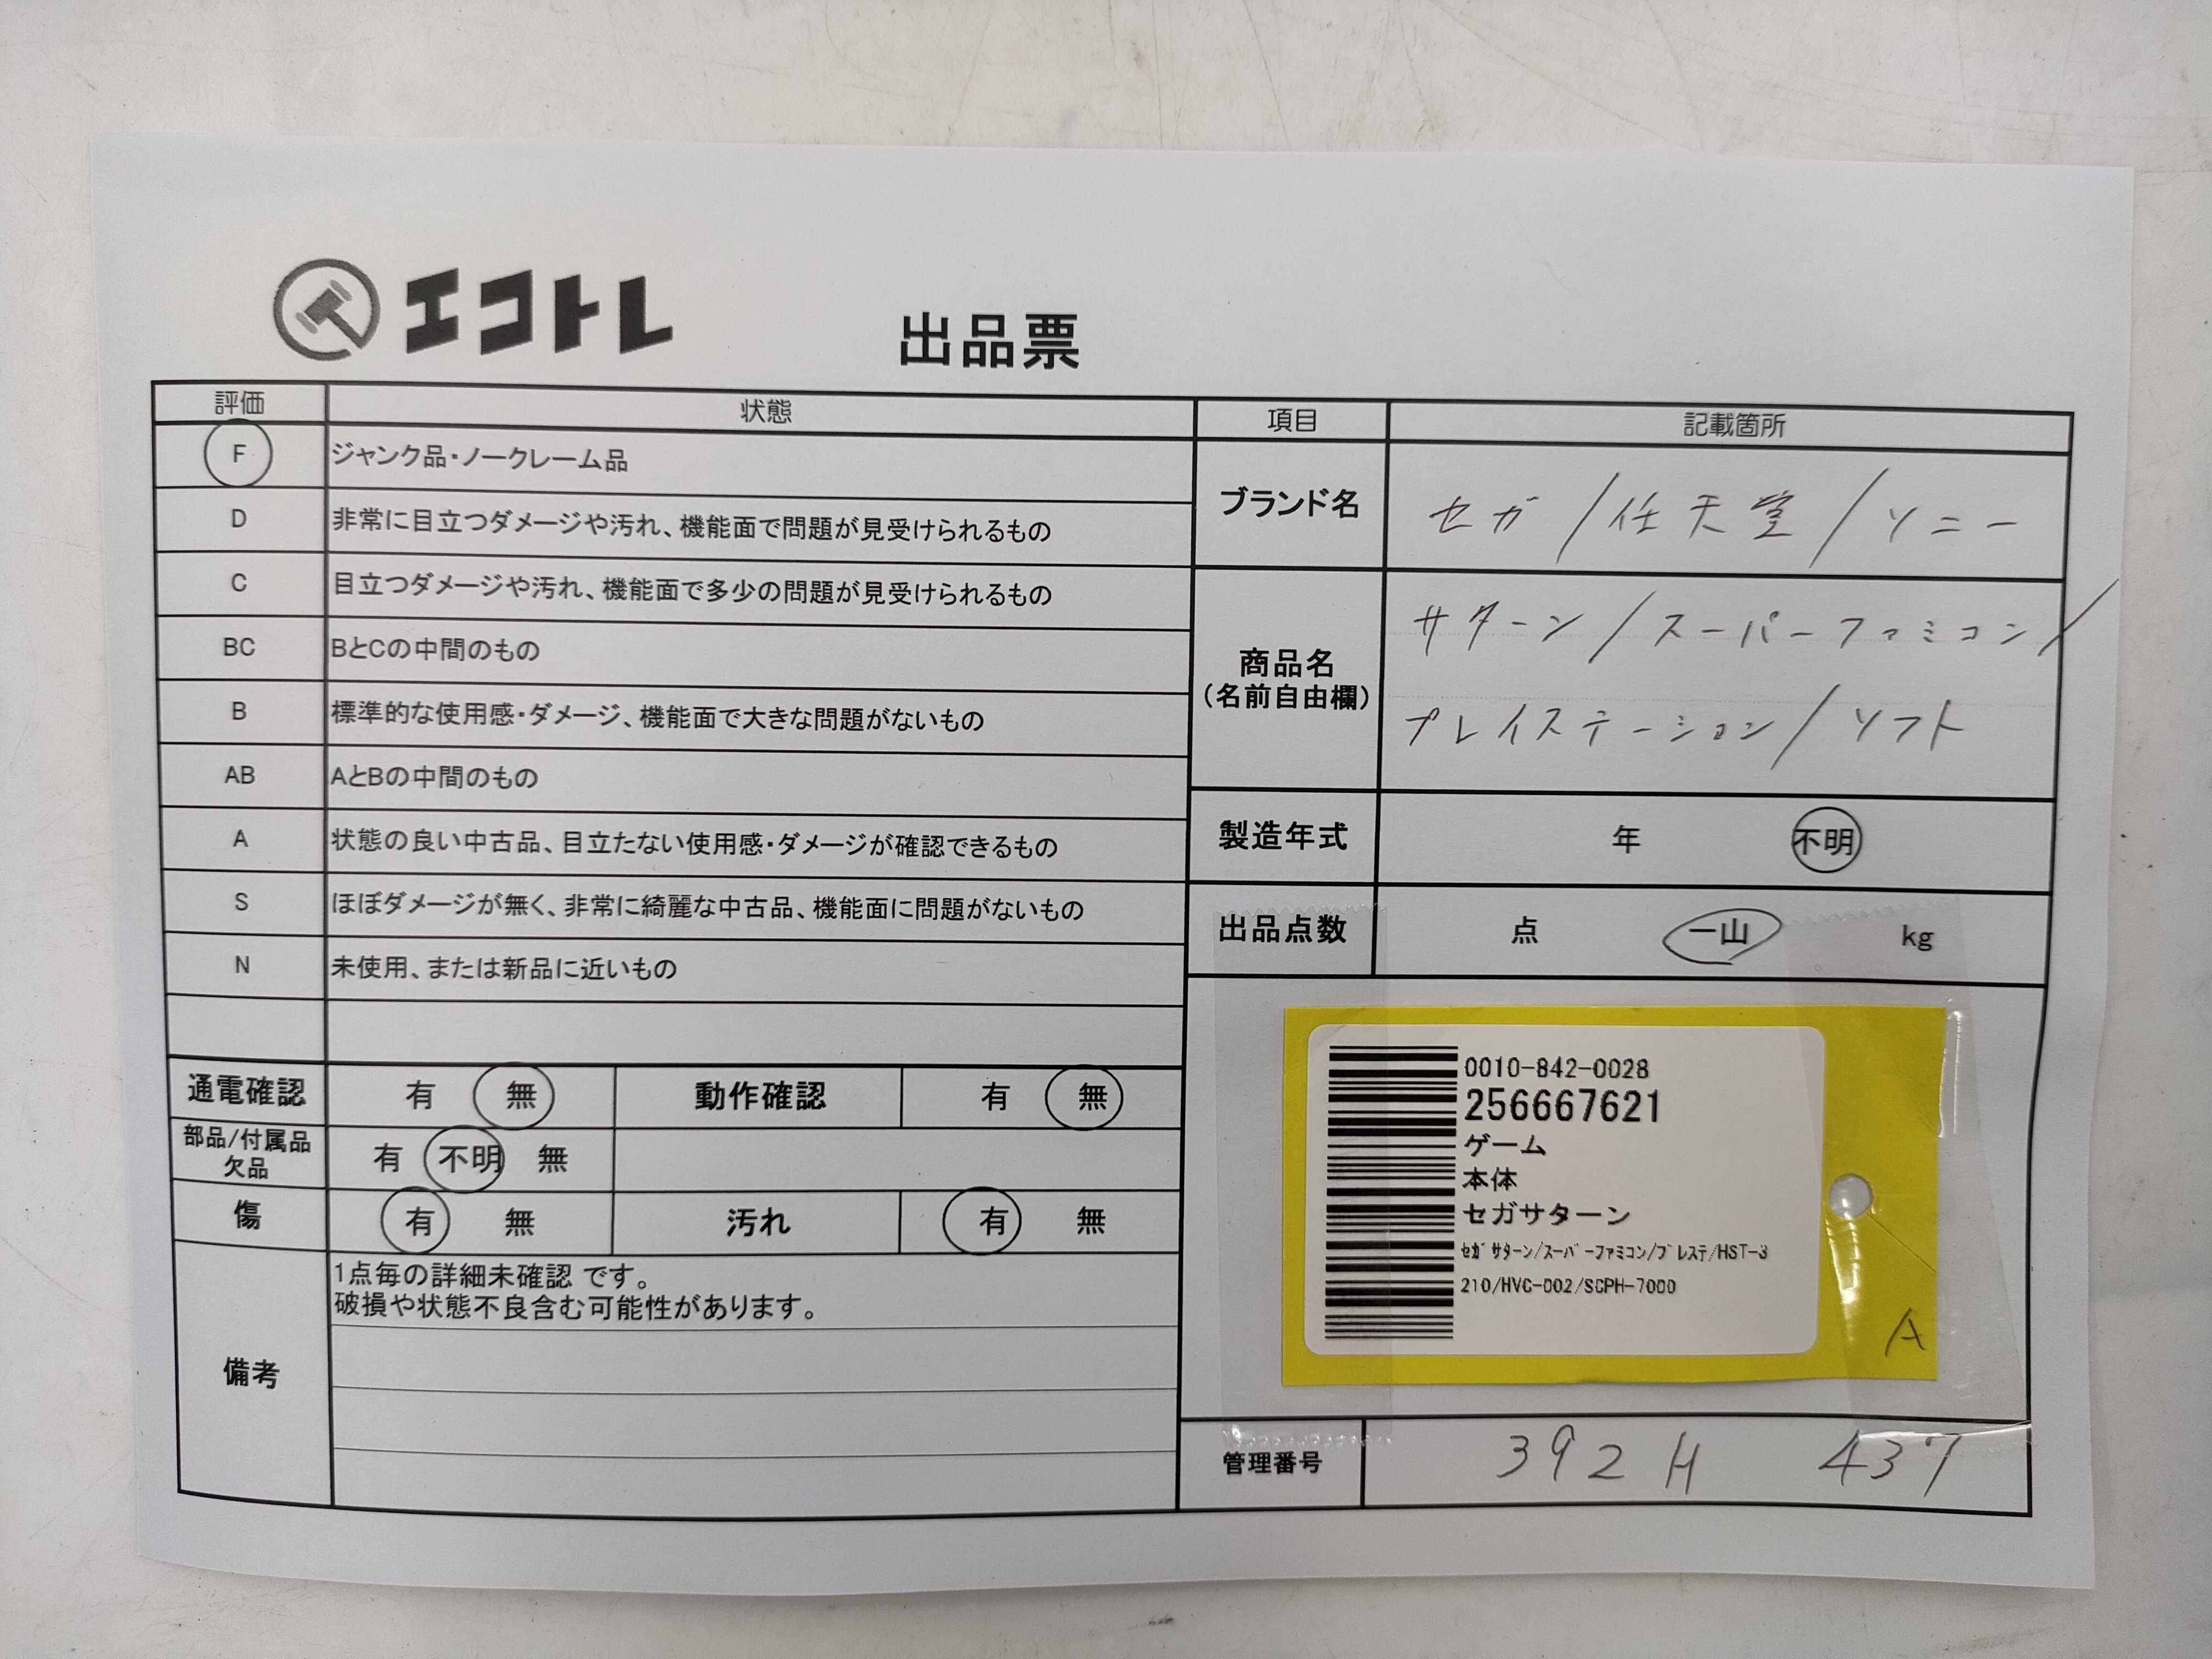 エコトレ
出品票
評価 状態
F ジャンク品・ノークレーム品
D 非常に目立つダメージや汚れ、機能面で問題が見受けられるもの
C 目立つダメージや汚れ、機能面で多少の問題が見受けられるもの
BC BとCの中間のもの
B 標準的な使用感・ダメージ、機能面で大きな問題がないもの
AB AとBの中間のもの
A 状態の良い中古品、目立たない使用感・ダメージが確認できるもの
S ほぼダメージが無く、非常に綺麗な中古品、機能面に問題がないもの
N 未使用、または新品に近いもの
通電確認 有 無 動作確認 有 無
部品/付属品
欠品 有 不明 無
傷 有 無 汚れ 有 無
備考
1点毎の詳細未確認 です。
破損や状態不良含む可能性があります。
項目 記載箇所
ブランド名 セガ/任天堂/ソニー
商品名
(名前自由欄)
サターン/スーパーファミコン/
プレイステーション/ソフト
製造年式 年 不明
出品点数 点 一山 kg
0010-842-0028
256667621
ゲーム
本体
セガサターン
ｾｶﾞｻﾀｰﾝ/ｽｰﾊﾟｰﾌｧﾐｺﾝ/ﾌﾟﾚｽﾃ/HST-3
210/HVC-002/SCPH-7000
A
管理番号 392H 437